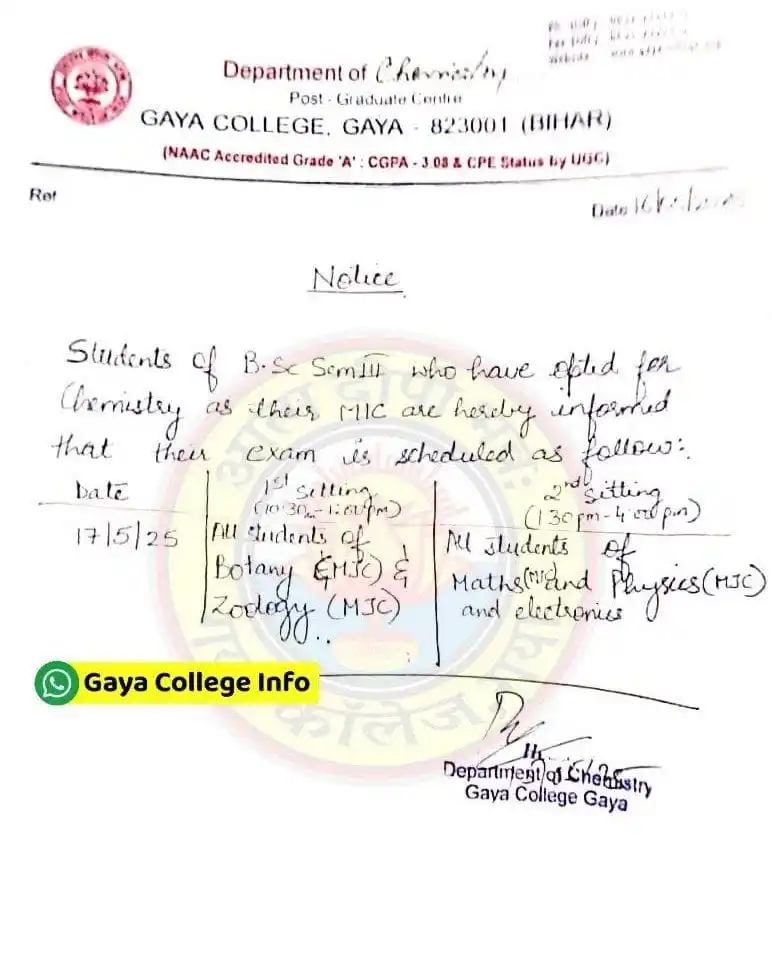 Department of Chemistry
Post - Graduate Centre
GAYA COLLEGE, GAYA - 823001 (BIHAR)
(NAAC Accredited Grade 'A' : CGPA - 3.08 & CPE Status by UGC)
Ref
Date
Notice
Students of B.Sc Sem III who have opted for
Chemistry as their MIC are hereby informed
that their exam is scheduled as follow:.
Date
1st Sitting
(10:30am-1:00pm)
2nd Sitting
(1 30pm-4:00pm)
17/5/25
All students of
Botany (MJC) &
Zoology (MJC)
All students of
Maths(MJC) and Physics(MJC)
and electronics
Gaya College Info
कॉलेज
Department of Chemistry
Gaya College Gaya